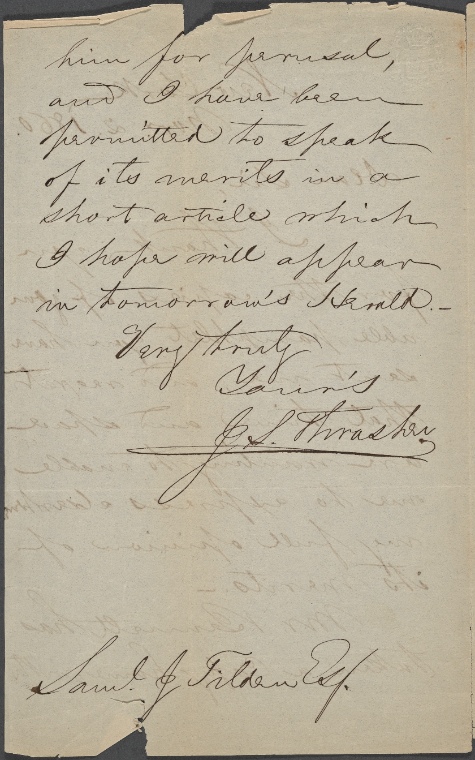 him for perusal,
and I have been
permitted to speak
of its merits in a
short article which
I hope will appear
in tomorrow's Herald.—
Very truly
Your's
J. S. Thrasher
Saml. J Tilden Esq.